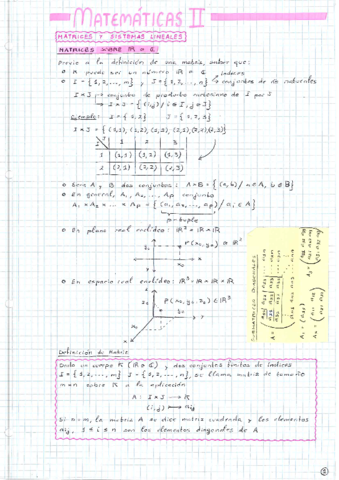 MATEMÁTICAS II
MATRICES Y SISTEMAS LINEALES
MATRICES SOBRE ℝ o ℂ
Previo a la definición de una matriz, saber que:
o K puede ser un número ℝ o ℂ
índices
o I = {1,2,..., m} y J = {1,2,..., n} → conjuntos de nº naturales
I x J → conjunto de producto cartesiano de I por J
→ I x J = {(i,j) / i ∈ I, j ∈ J}
Ejemplo: I = {1,2} J = {1,2,3}
I x J = {(1,1), (1,2), (1,3), (2,1), (2,2), (2,3)}
I J 1 2 3
1 (1,1) (1,2) (1,3)
2 (2,1) (2,2) (2,3)
o Sean A y B dos conjuntos: A x B = {(a,b) / a ∈ A, b ∈ B}
o En general, A₁, A₂, ..., Ap conjunto
A₁ x A₂ x ... x Ap = {(a₁, a₂, ..., ap) / aᵢ ∈ Aᵢ}
p-tupla
o En plano real euclídeo: ℝ² = ℝ x ℝ
P(x₀, y₀) ∈ ℝ²
x₀
o En espacio real euclídeo: ℝ³ = ℝ x ℝ x ℝ
P(x₀, y₀, z₀) ∈ ℝ³
z₀
y₀
x₀
Definición de Matriz
Dado un cuerpo K (ℝ o ℂ) y dos conjuntos finitos de índices
I = {1,2,..., m} J = {1,2,..., n}, se llama matriz de tamaño
m x n sobre K a la aplicación
A: I x J → K
(i,j) ↦ aij
Si n = m, la matriz A se dice matriz cuadrada y los elementos
aii, 1 ≤ i ≤ n son los elementos diagonales de A